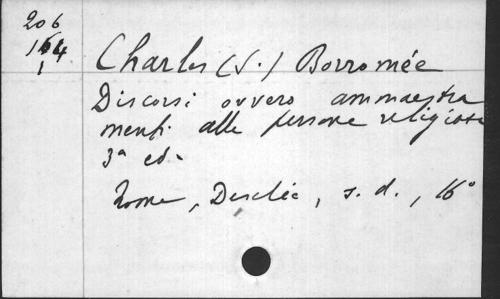 206
164
1
Charles (S.) Borromée
Discorsi ovvero ammaestra
menti alle persone religiose
3a ed.
Rome, Desclée, s. d., 16°